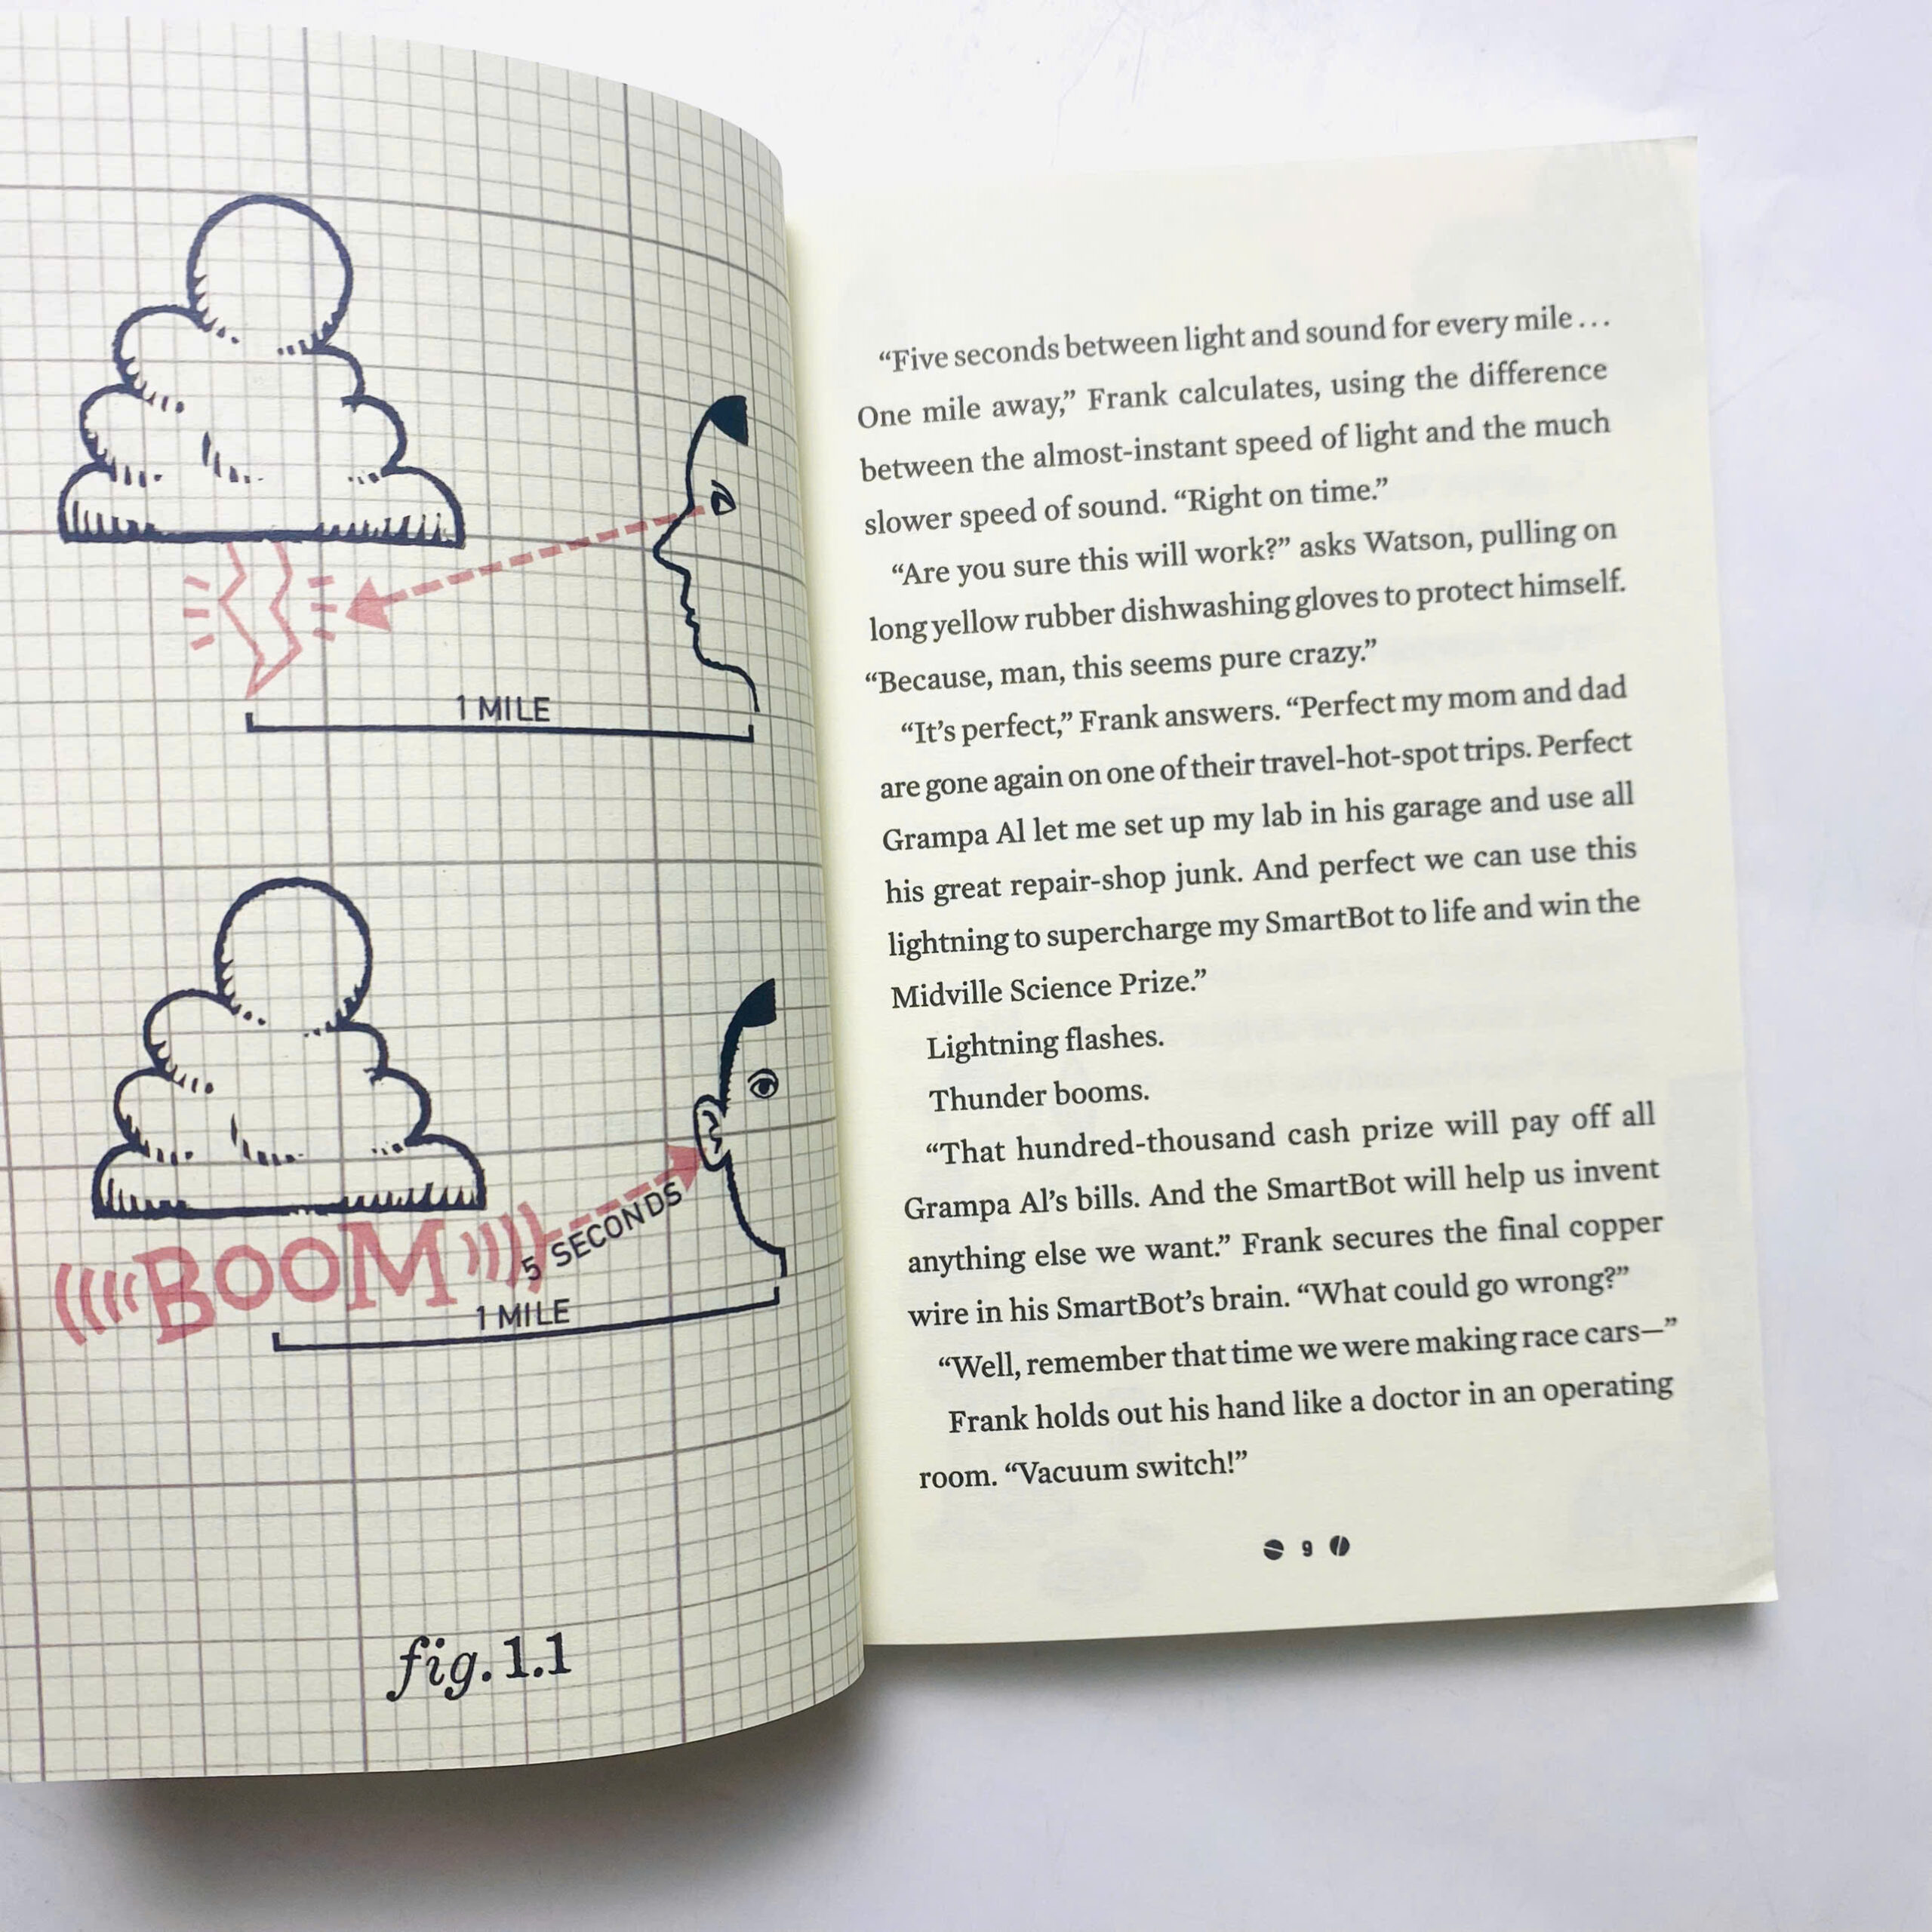 1 MILE
((((BOOM))))
5 SECONDS
1 MILE
fig. 1.1
“Five seconds between light and sound for every mile . . .
One mile away,” Frank calculates, using the difference
between the almost-instant speed of light and the much
slower speed of sound. “Right on time.”
“Are you sure this will work?” asks Watson, pulling on
long yellow rubber dishwashing gloves to protect himself.
“Because, man, this seems pure crazy.”
“It’s perfect,” Frank answers. “Perfect my mom and dad
are gone again on one of their travel-hot-spot trips. Perfect
Grampa Al let me set up my lab in his garage and use all
his great repair-shop junk. And perfect we can use this
lightning to supercharge my SmartBot to life and win the
Midville Science Prize.”
Lightning flashes.
Thunder booms.
“That hundred-thousand cash prize will pay off all
Grampa Al’s bills. And the SmartBot will help us invent
anything else we want.” Frank secures the final copper
wire in his SmartBot’s brain. “What could go wrong?”
“Well, remember that time we were making race cars—”
Frank holds out his hand like a doctor in an operating
room. “Vacuum switch!”
9